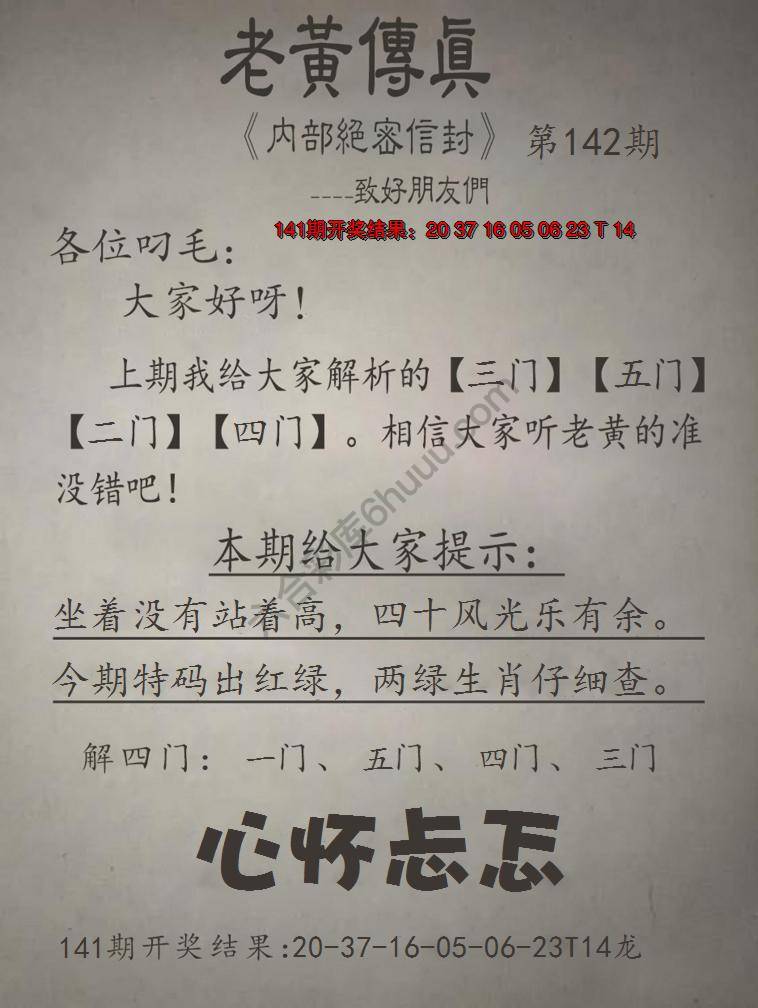 老黃傳眞
《内部絕密信封》 第142期
----致好朋友們
141期开奖结果：20 37 16 05 06 23 T 14
各位叼毛：
大家好呀！
上期我给大家解析的【三门】【五门】
【二门】【四门】。相信大家听老黄的准
没错吧！
本期给大家提示：
坐着没有站着高，四十风光乐有余。
今期特码出红绿，两绿生肖仔细查。
解四门：一门、五门、四门、三门
心怀忐忑
141期开奖结果:20-37-16-05-06-23T14龙
六合彩库6huuu.com